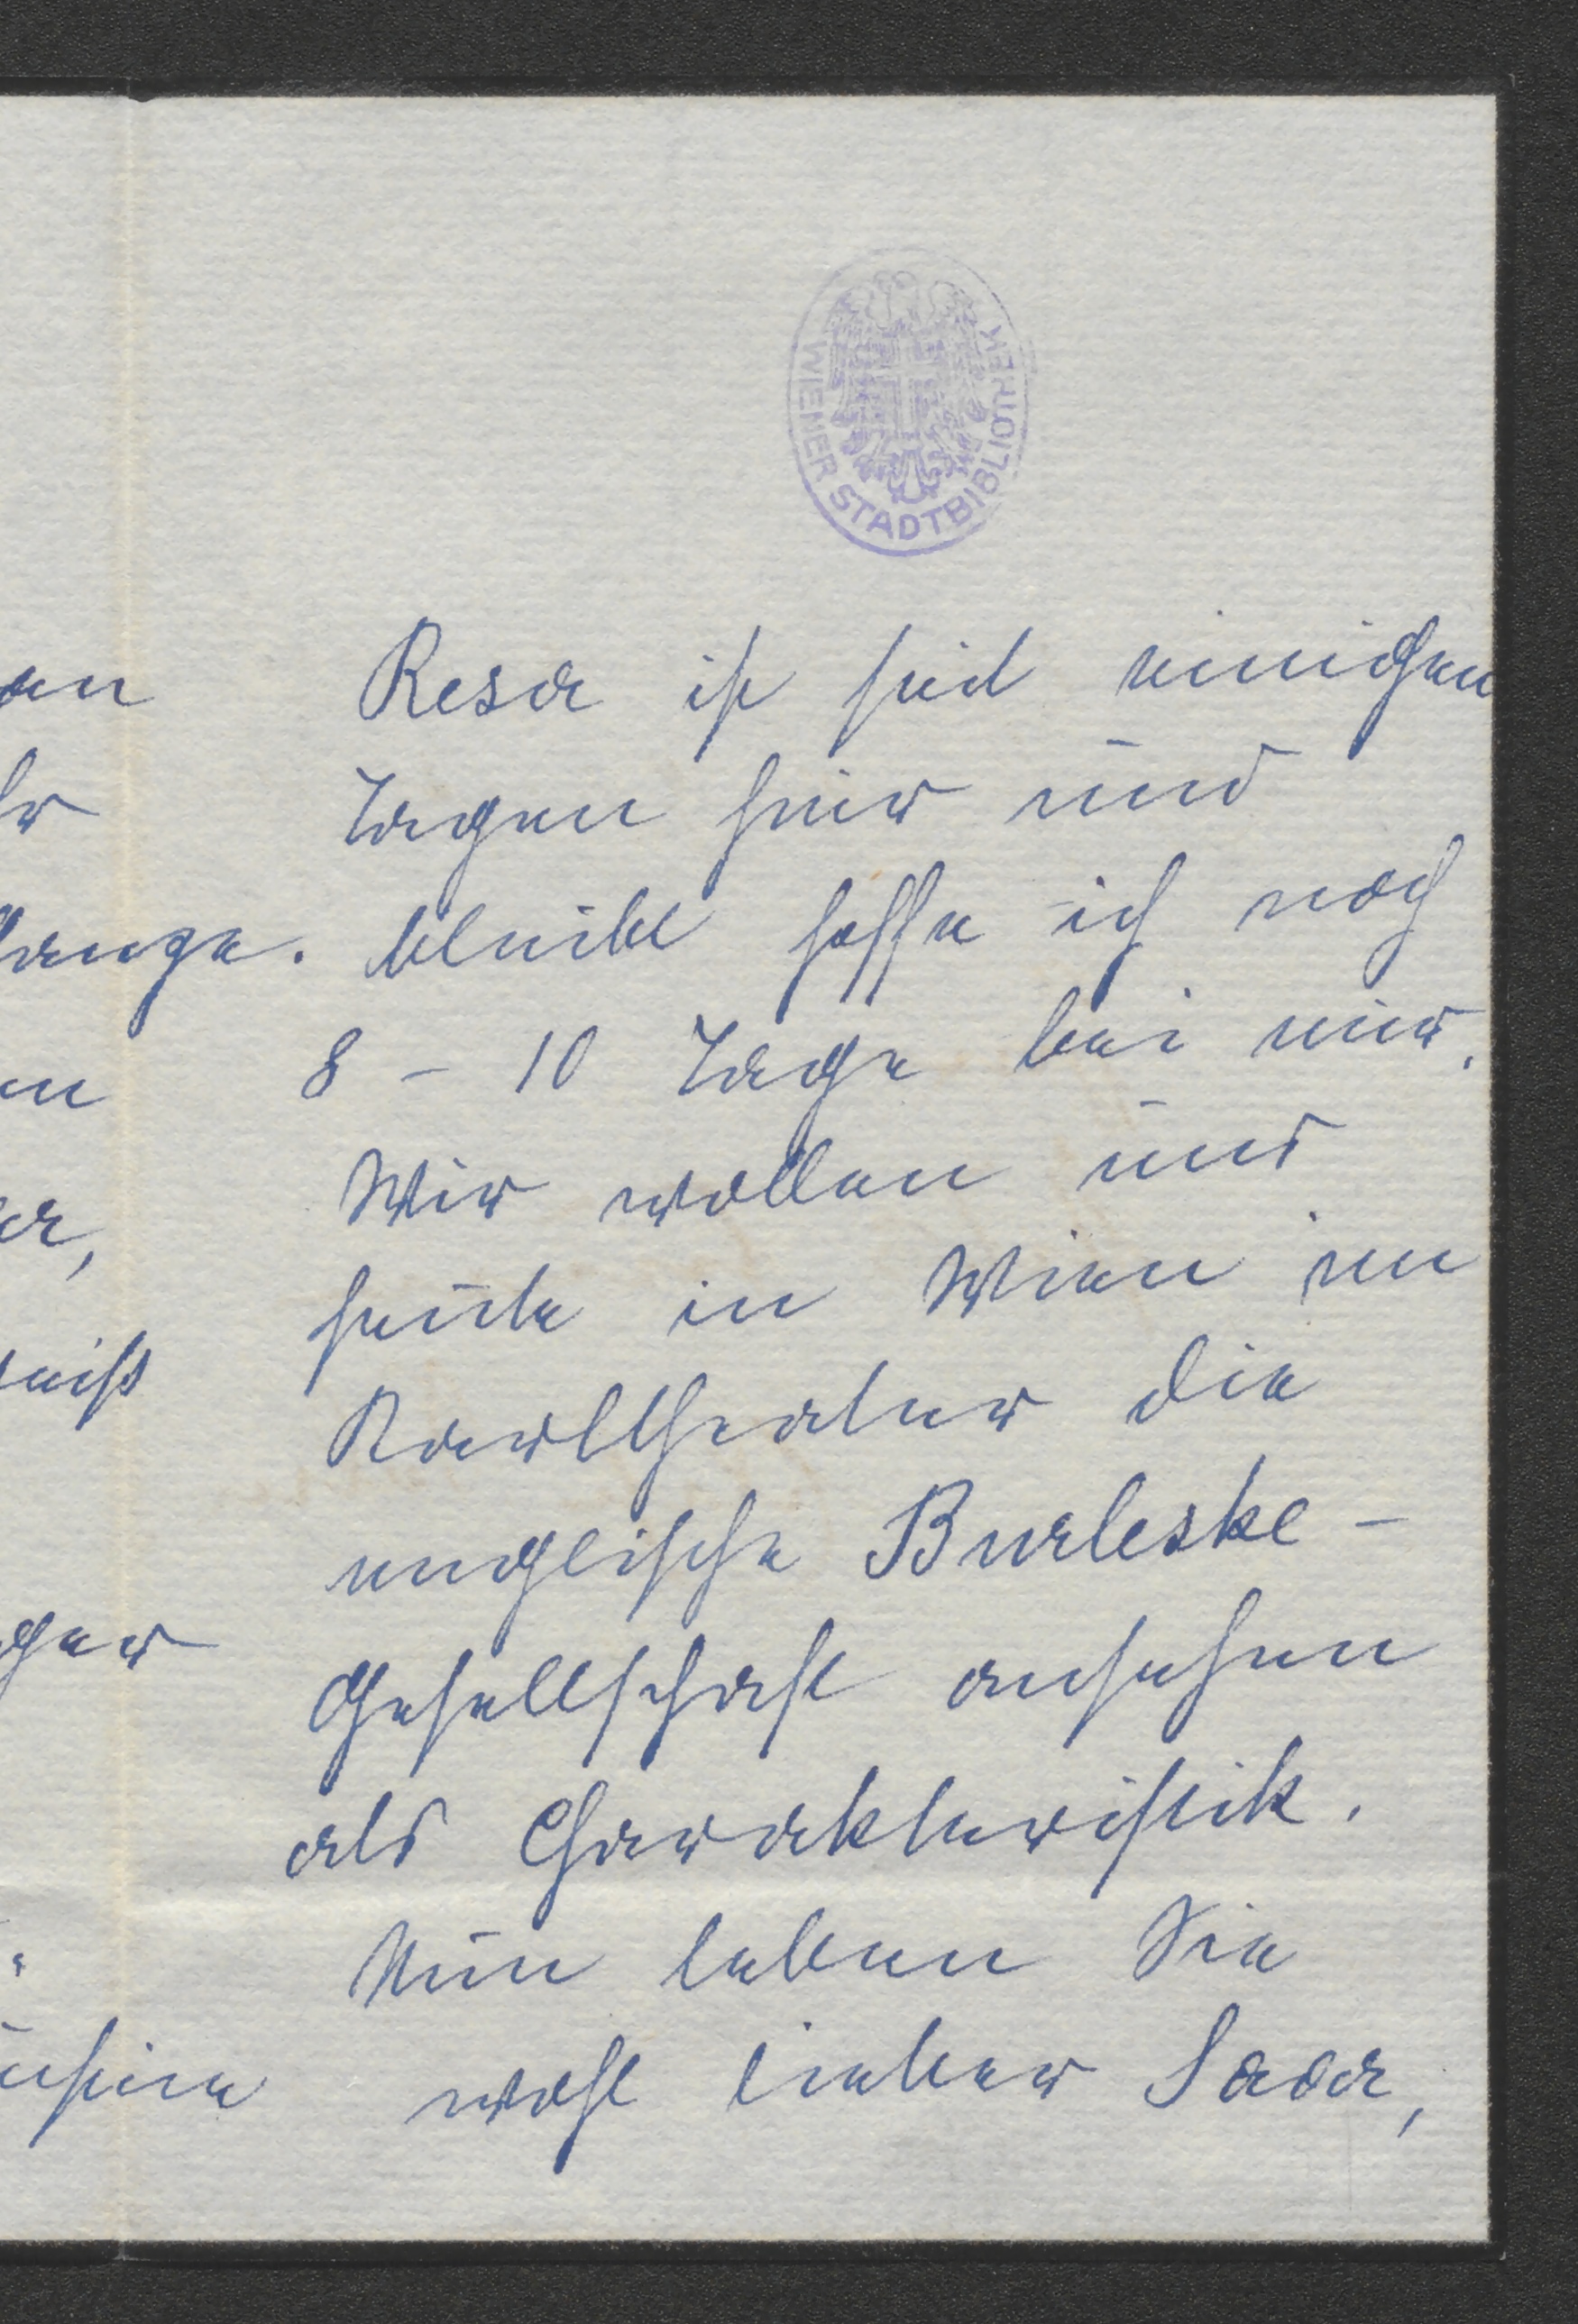 WIENER STADTBIBLIOTHEK
an
ar,
ger
Resa ist seid einigen
Tagen hier und
bleibt hoffe ich noch
8 – 10 Tage bei mir.
Wir wollen uns
heute in Wien im
Karltheater die
englische Burleske –
Gesellschaft ansehen
als Charakteristik.
Nun leben Sie
wohl lieber Saar,